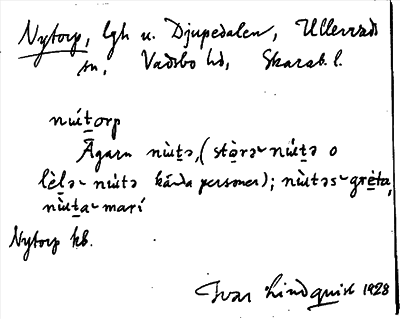 Nytorp, lgh u. Djupedalen, Ullervads
sn, Vadsbo hd, Skarab. l.
núi̯torp
Ägaren nùi̯tə, (stò̱rə~núi̯tə o
lèḻə~núi̯tə kända personer); nùi̯təs~gre̱ta,
nùi̯ta~marí
Nytorp kb.
Ivar Lindquist 1928